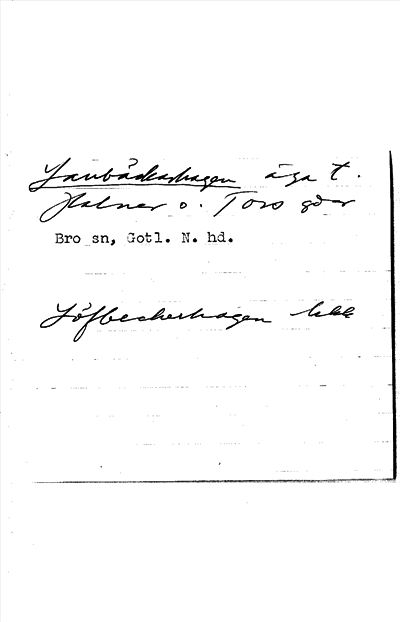 Laubäckerhagen äga t.
Halner o. Tors gdr
Bro sn, Gotl. N. hd.
Löfbeckerhagen